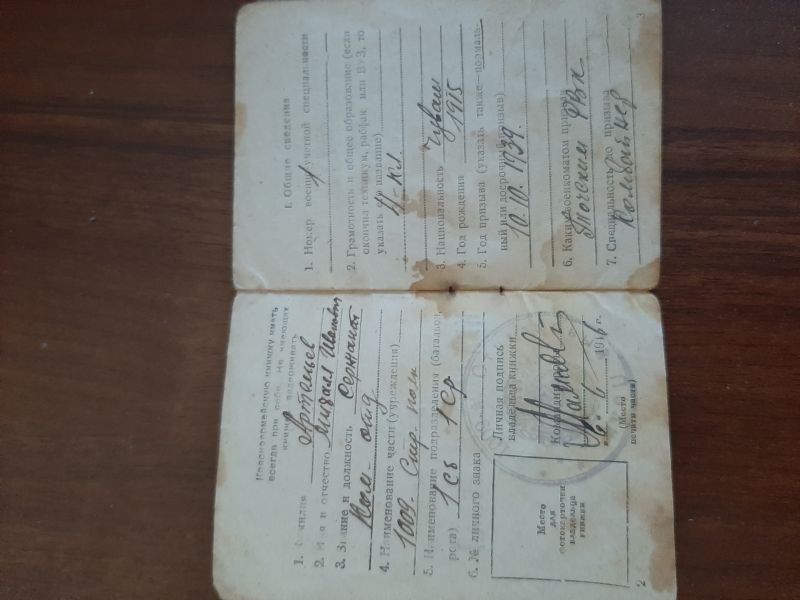 Красноармейскую книжку иметь
всегда при себе. Не имеющих
книжки задерживать
1. Фамилия Артемьев
2. Имя и отчество Михаил
3. Звание и должность сержант
Ком-отд
4. Наименование части (учреждения)
1003 - Стр. полк
5. Наименование подразделения (батальон,
рота) 1 сб 1 ср
6. № личного знака
Личная подпись
владельца книжки
Командир
6 194 г.
(Место
печати части)
Место
для
фотокарточки
владельца
книжки
2
I. Общие сведения
1. Номер военно-учетной специальности
1
2. Грамотность и общее образование (если
окончил техникум, рабфак или ВУЗ, то
указать их название)
4-кл.
3. Национальность Чуваш
4. Год рождения 1915
5. Год призыва (указать также нормаль-
ный или досрочный призыв)
10.10.1939.
6. Каким военкоматом призван
РВК
7. Специальность до призыва
Комбайнер
3